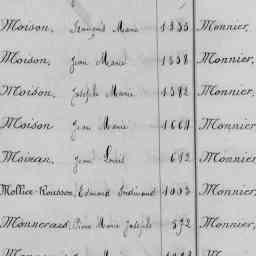 Moison, François Marie 1335 Monnier,
Moison, Jean Marie 1338 Monnier,
Moison, Joseph Marie 1592 Monnier,
Moison Jean Marie 1664 Monnier
Moizan, Jean Louis 612 Monnier,
Mollier-Rousson, Edmond Ferdinand 1003 Monnier,
Monneraud, Pierre Marie Joseph 592 Monnier,